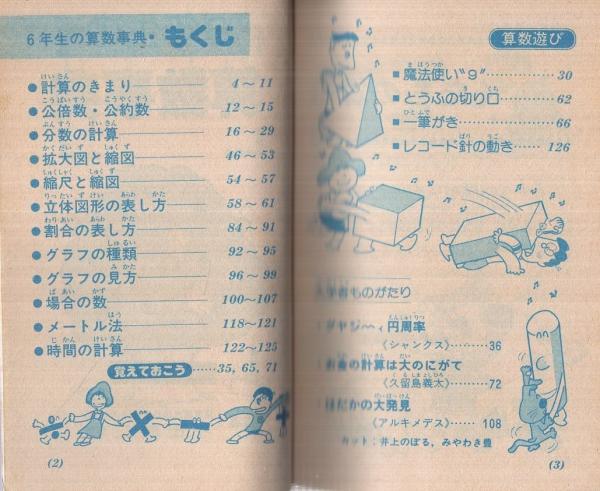 6年生の算数事典・もくじ
●計算のきまり 4〜11
●公倍数・公約数 12〜15
●分数の計算 16〜29
●拡大図と縮図 46〜53
●縮尺と縮図 54〜57
●立体図形の表し方 58〜61
●割合の表し方 84〜91
●グラフの種類 92〜95
●グラフの見方 96〜99
●場合の数 100〜107
●メートル法 118〜121
●時間の計算 122〜125
覚えておこう……35, 65, 71
÷ × − +
(2)
算数遊び
■魔法使い"9"……30
■とうふの切り口……62
■一筆がき……66
■レコード針の動き……126
学者ものがたり
円周率
〈シャンクス〉……36
の計算は大のにがて
〈久留島義太〉……72
はだかの大発見
〈アルキメデス〉……108
カット：井上のぼる, みやわき豊
(3)